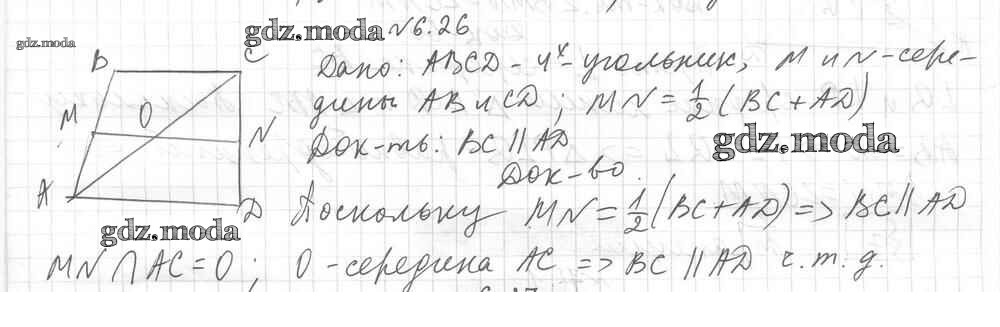 gdz.moda
gdz.moda
№6.26
B
C
M
O
N
A
D
Дано: ABCD - 4х-угольник, M и N-сере-
дины AB и CD; MN = 1/2 (BC + AD)
gdz.moda
Док-ть: BC || AD
Док-во.
Поскольку MN = 1/2 (BC + AD) => BC || AD
gdz.moda
MN ∩ AC = O; O - середина AC => BC || AD ч.т.д.